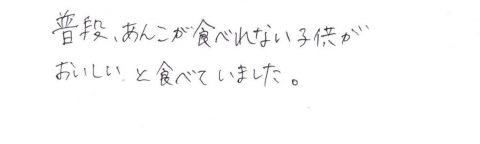 普段、あんこが食べれない子供が
おいしいと食べていました。